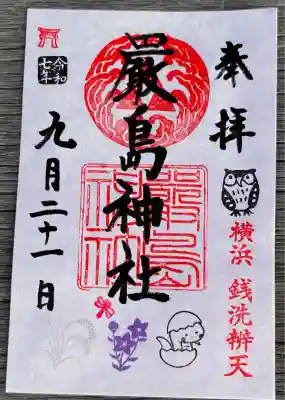 奉拝
横浜 銭洗辨天
嚴島神社
令和
七年
九月二十一日